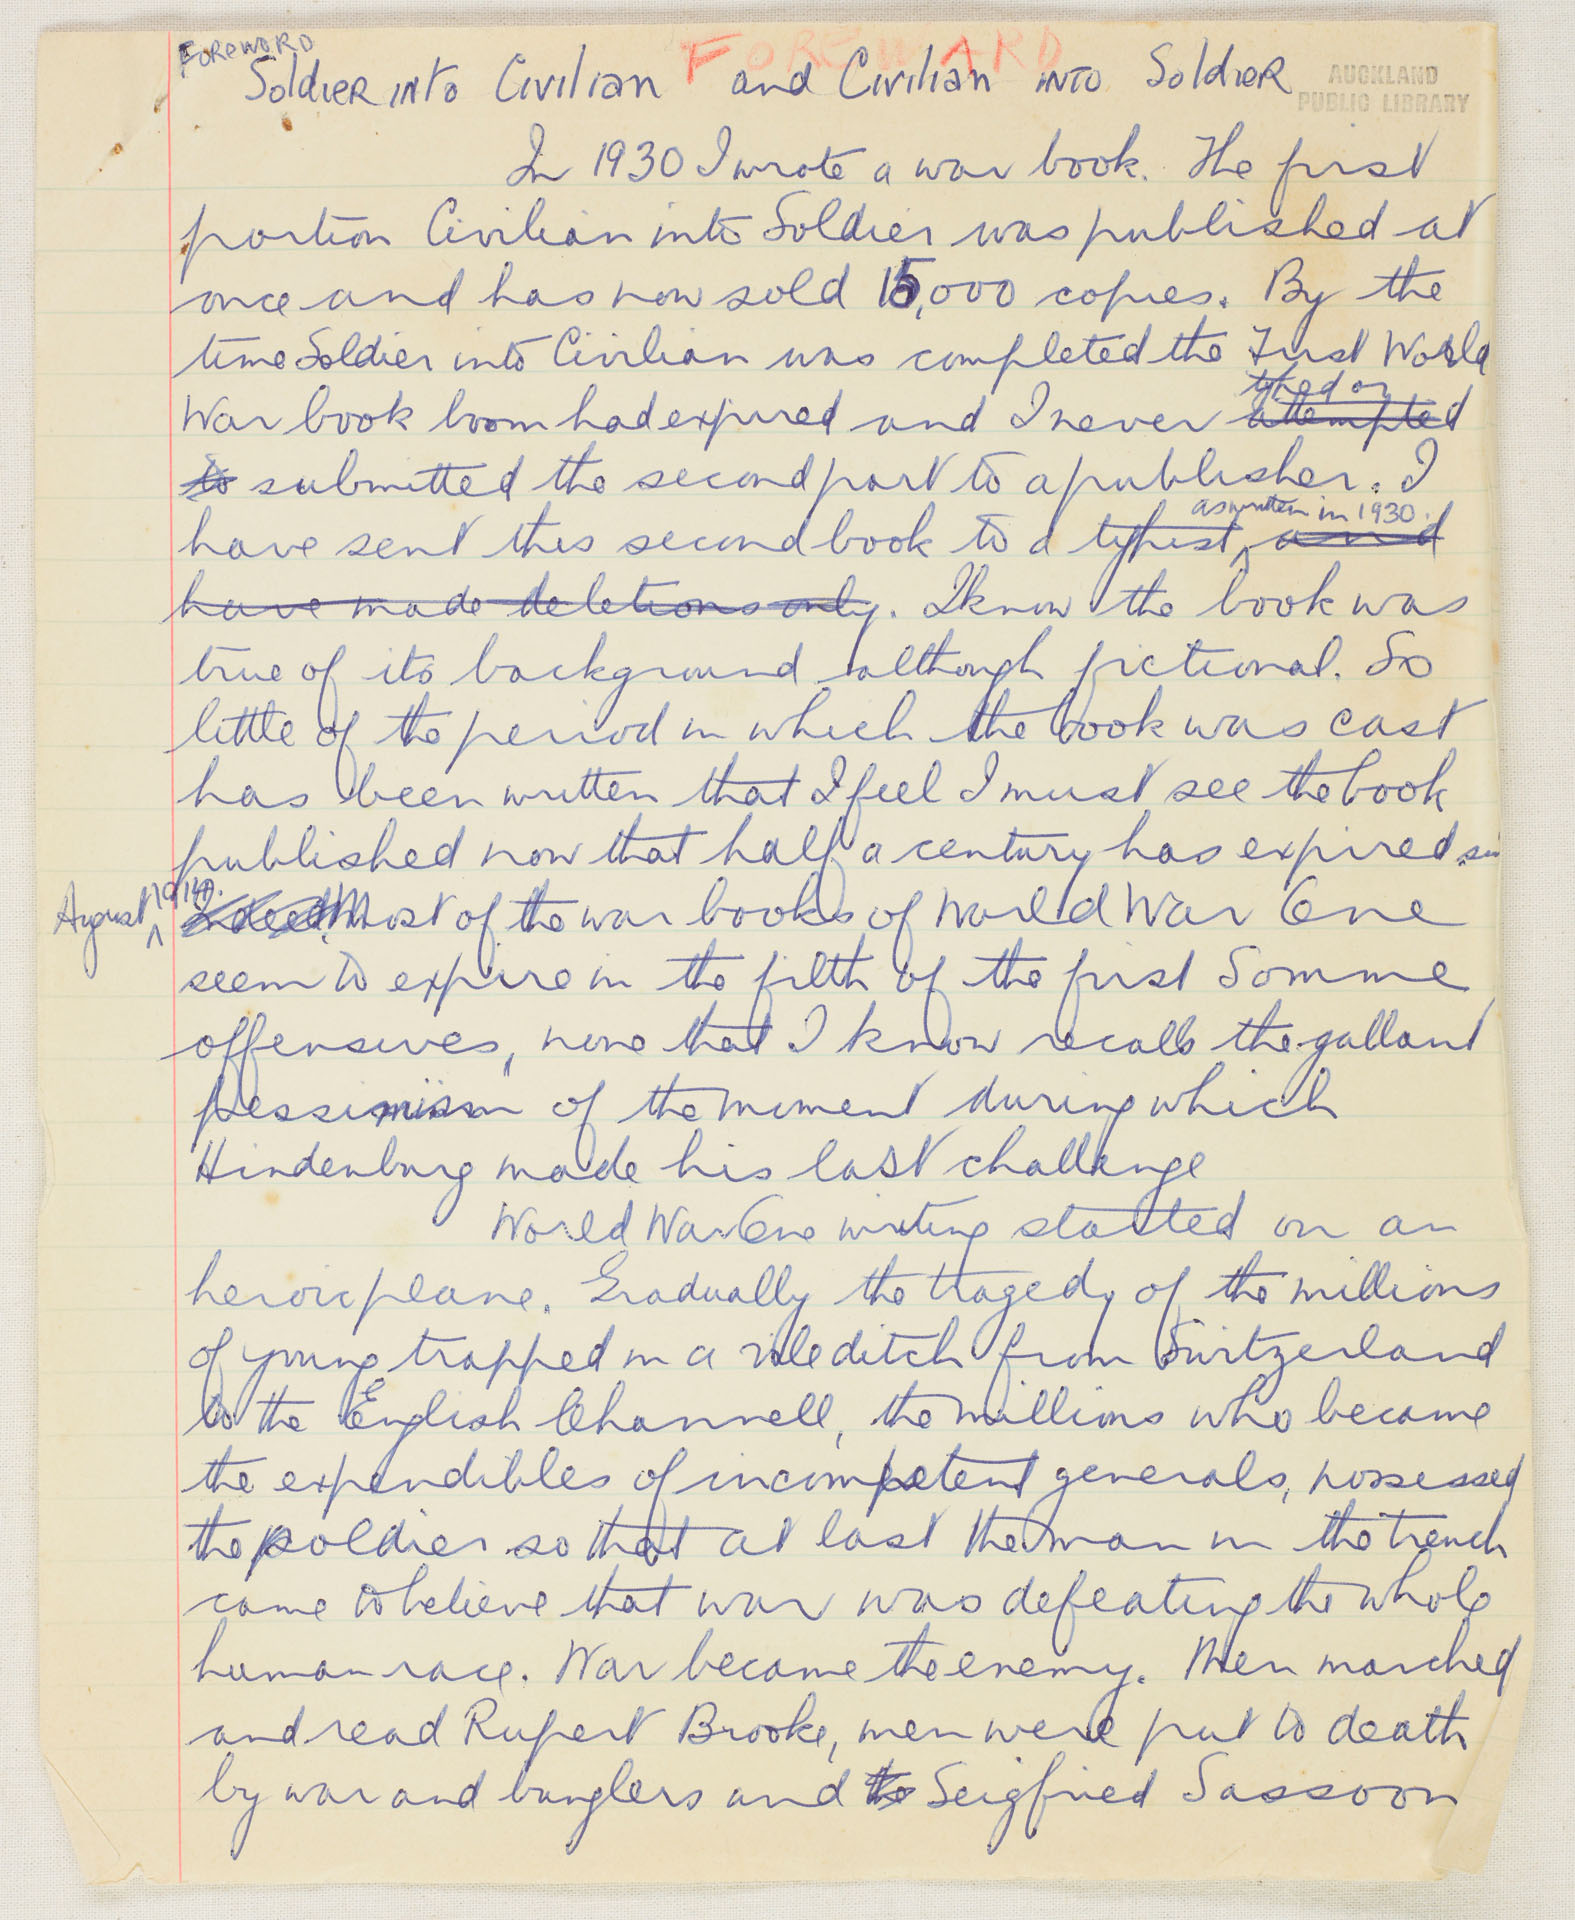 FOREWORD
FOREWARD
Soldier into Civilian and Civilian into Soldier
AUCKLAND
PUBLIC LIBRARY
In 1930 I wrote a war book. The first
portion Civilian into Soldier was published at
once and has now sold 15,000 copies. By the
time Soldier into Civilian was completed the First World
typed or
War book boom had expired and I never attempted
to submitted the second part to a publisher. I
as written in 1930.
have sent this second book to a typist, and
have made deletions only. I know the book was
true of its background although fictional. So
little of the period in which the book was cast
has been written that I feel I must see the book
published now that half a century has expired
August 1914. Indeed Most of the war books of World War One
seem to expire in the filth of the first Somme
offensives, none that I know recalls the gallant
pessimism of the moment during which
Hindenburg made his last challenge
World War One writing started on an
heroic plane. Gradually the tragedy of the millions
of young trapped in a vile ditch from Switzerland
to the English Channell, the millions who became
the expendibles of incompetent generals, possessed
the soldier so that at last the man in the trench
came to believe that war was defeating the whole
human race. War became the enemy. Men marched
and read Rupert Brooke, men were put to death
by war and bunglers and to Seigfried Sassoon